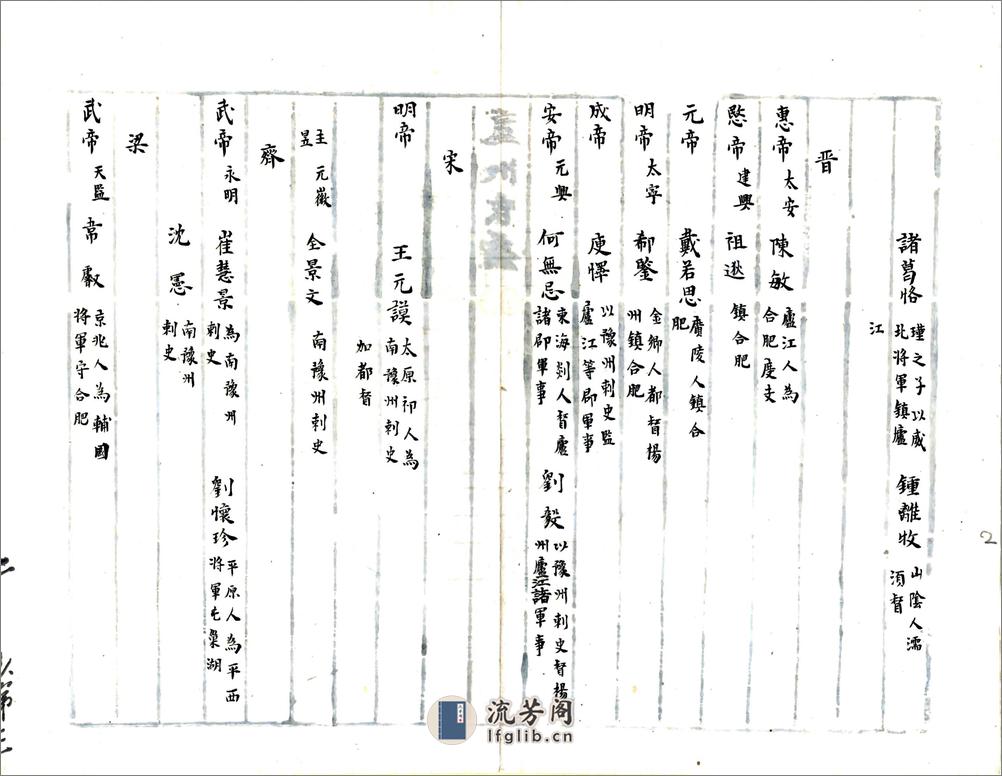 諸葛恪 瑾之子以威北將軍鎮廬江 鍾離牧 山陰人濡須督
晋
惠帝 太安 陳敏 廬江人為合肥度支
愍帝 建興 祖逖 鎮合肥
元帝 戴若思 廣陵人鎮合肥
明帝 太寧 郗鑒 金鄉人都督楊州鎮合肥
成帝 庾懌 以豫州刺史監廬江等郡軍事
安帝 元興 何無忌 東海剡人督廬諸郡軍事 劉毅 以豫州刺史督楊州廬江諸軍事
宋
明帝 王元謨 太原祁人為南豫州刺史加都督
主昱 元徽 全景文 南豫州刺史
齊
武帝 永明 崔慧景 為南豫州刺史 劉懷珍 平原人為平西將軍屯巢湖
沈憲 南豫州刺史
梁
武帝 天監 韋叡 京兆人為輔國將軍守合肥
2
流芳阁
lfglib.cn